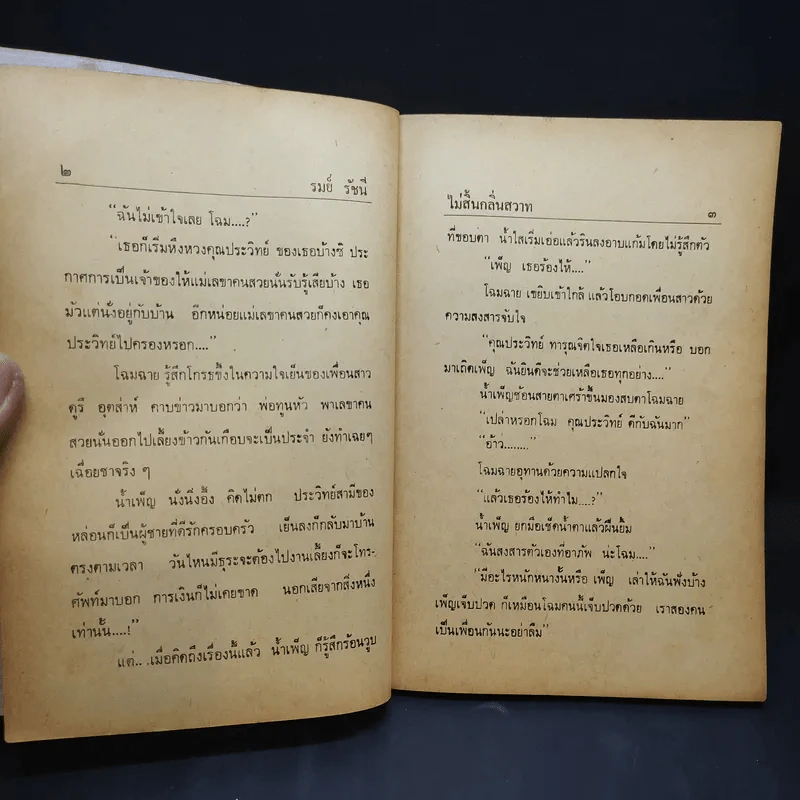 ๒
รมย์ รัชนี
“ฉันไม่เข้าใจเลย โฉม....?”
“เธอก็เริ่มหึงหวงคุณประวิทย์ ของเธอบ้างซิ ประ
กาศการเป็นเจ้าของให้แม่เลขาคนสวยนั่นรับรู้เสียบ้าง เธอ
มัวแต่นั่งอยู่กับบ้าน อีกหน่อยแม่เลขาคนสวยก็คงเอาคุณ
ประวิทย์ไปครองหรอก....”
โฉมฉาย รู้สึกโกรธขึ้งในความใจเย็นของเพื่อนสาว
ดูรึ อุตส่าห์ คาบข่าวมาบอกว่า พ่อทูนหัว พาเลขาคน
สวยนั่นออกไปเลี้ยงข้าวกันเกือบจะเป็นประจำ ยังทำเฉยๆ
เฉื่อยชาจริง ๆ
น้ำเพ็ญ นั่งนิ่งอึ้ง คิดไม่ตก ประวิทย์สามีของ
หล่อนก็เป็นผู้ชายที่ดีรักครอบครัว เย็นลงก็กลับมาบ้าน
ตรงตามเวลา วันไหนมีธุระจะต้องไปงานเลี้ยงก็จะโทร-
ศัพท์มาบอก การเงินก็ไม่เคยขาด นอกเสียจากสิ่งหนึ่ง
เท่านั้น....!”
แต่....เมื่อคิดถึงเรื่องนี้แล้ว น้ำเพ็ญ ก็รู้สึกร้อนวูบ
ไม่สิ้นกลิ่นสวาท
๓
ที่ขอบตา น้ำใสเริ่มเอ่อแล้วรินลงอาบแก้มโดยไม่รู้สึกตัว
“เพ็ญ เธอร้องไห้....”
โฉมฉาย เขยิบเข้าใกล้ แล้วโอบกอดเพื่อนสาวด้วย
ความสงสารจับใจ
“คุณประวิทย์ ทารุณจิตใจเธอเหลือเกินหรือ บอก
มาเถิดเพ็ญ ฉันยินดีจะช่วยเหลือเธอทุกอย่าง....”
น้ำเพ็ญช้อนสายตาเศร้าขึ้นมองสบตาโฉมฉาย
“เปล่าหรอกโฉม คุณประวิทย์ ดีกับฉันมาก”
“อ้าว........”
โฉมฉายอุทานด้วยความแปลกใจ
“แล้วเธอร้องไห้ทำไม....?”
น้ำเพ็ญ ยกมือเช็ดน้ำตาแล้วฝืนยิ้ม
“ฉันสงสารตัวเองที่อาภัพ น่ะโฉม....”
“มีอะไรหนักหนางั้นหรือ เพ็ญ เล่าให้ฉันฟังบ้าง
เพ็ญเจ็บปวด ก็เหมือนโฉมคนนี้เจ็บปวดด้วย เราสองคน
เป็นเพื่อนกันนะอย่าลืม”